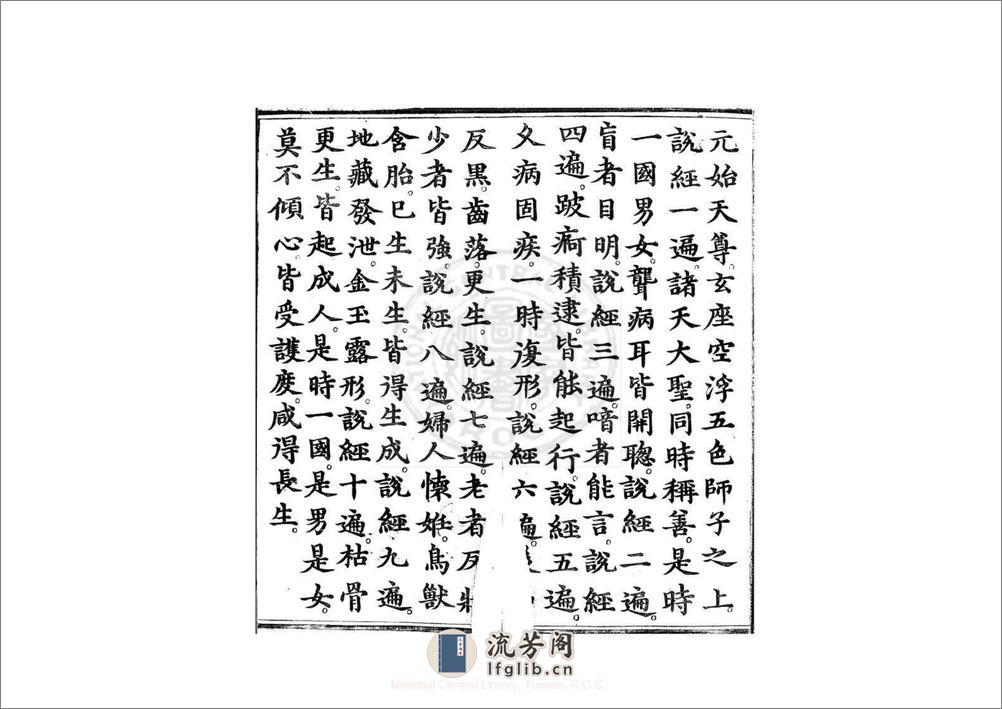 元始天尊。玄座空浮五色師子之上。
說經一遍。諸天大聖。同時稱善。是時
一國男女。聾病耳皆開聰。說經二遍。
盲者目明。說經三遍。喑者能言。說經
四遍。跛痾積逮。皆能起行。說經五遍。
久病固疾。一時復形。說經六遍。
反黑。齒落。更生。說經七遍。老者反壯
少者皆強。說經八遍。婦人懷姙。鳥獸
含胎。已生未生皆得生成。說經九遍。
地藏發泄。金玉露形。說經十遍。枯骨
更生。皆起成人。是時一國。是男是女。
莫不傾心。皆受護度。咸得長生。
流芳阁
lfglib.cn
National Central Library, Taiwan, R.O.C.